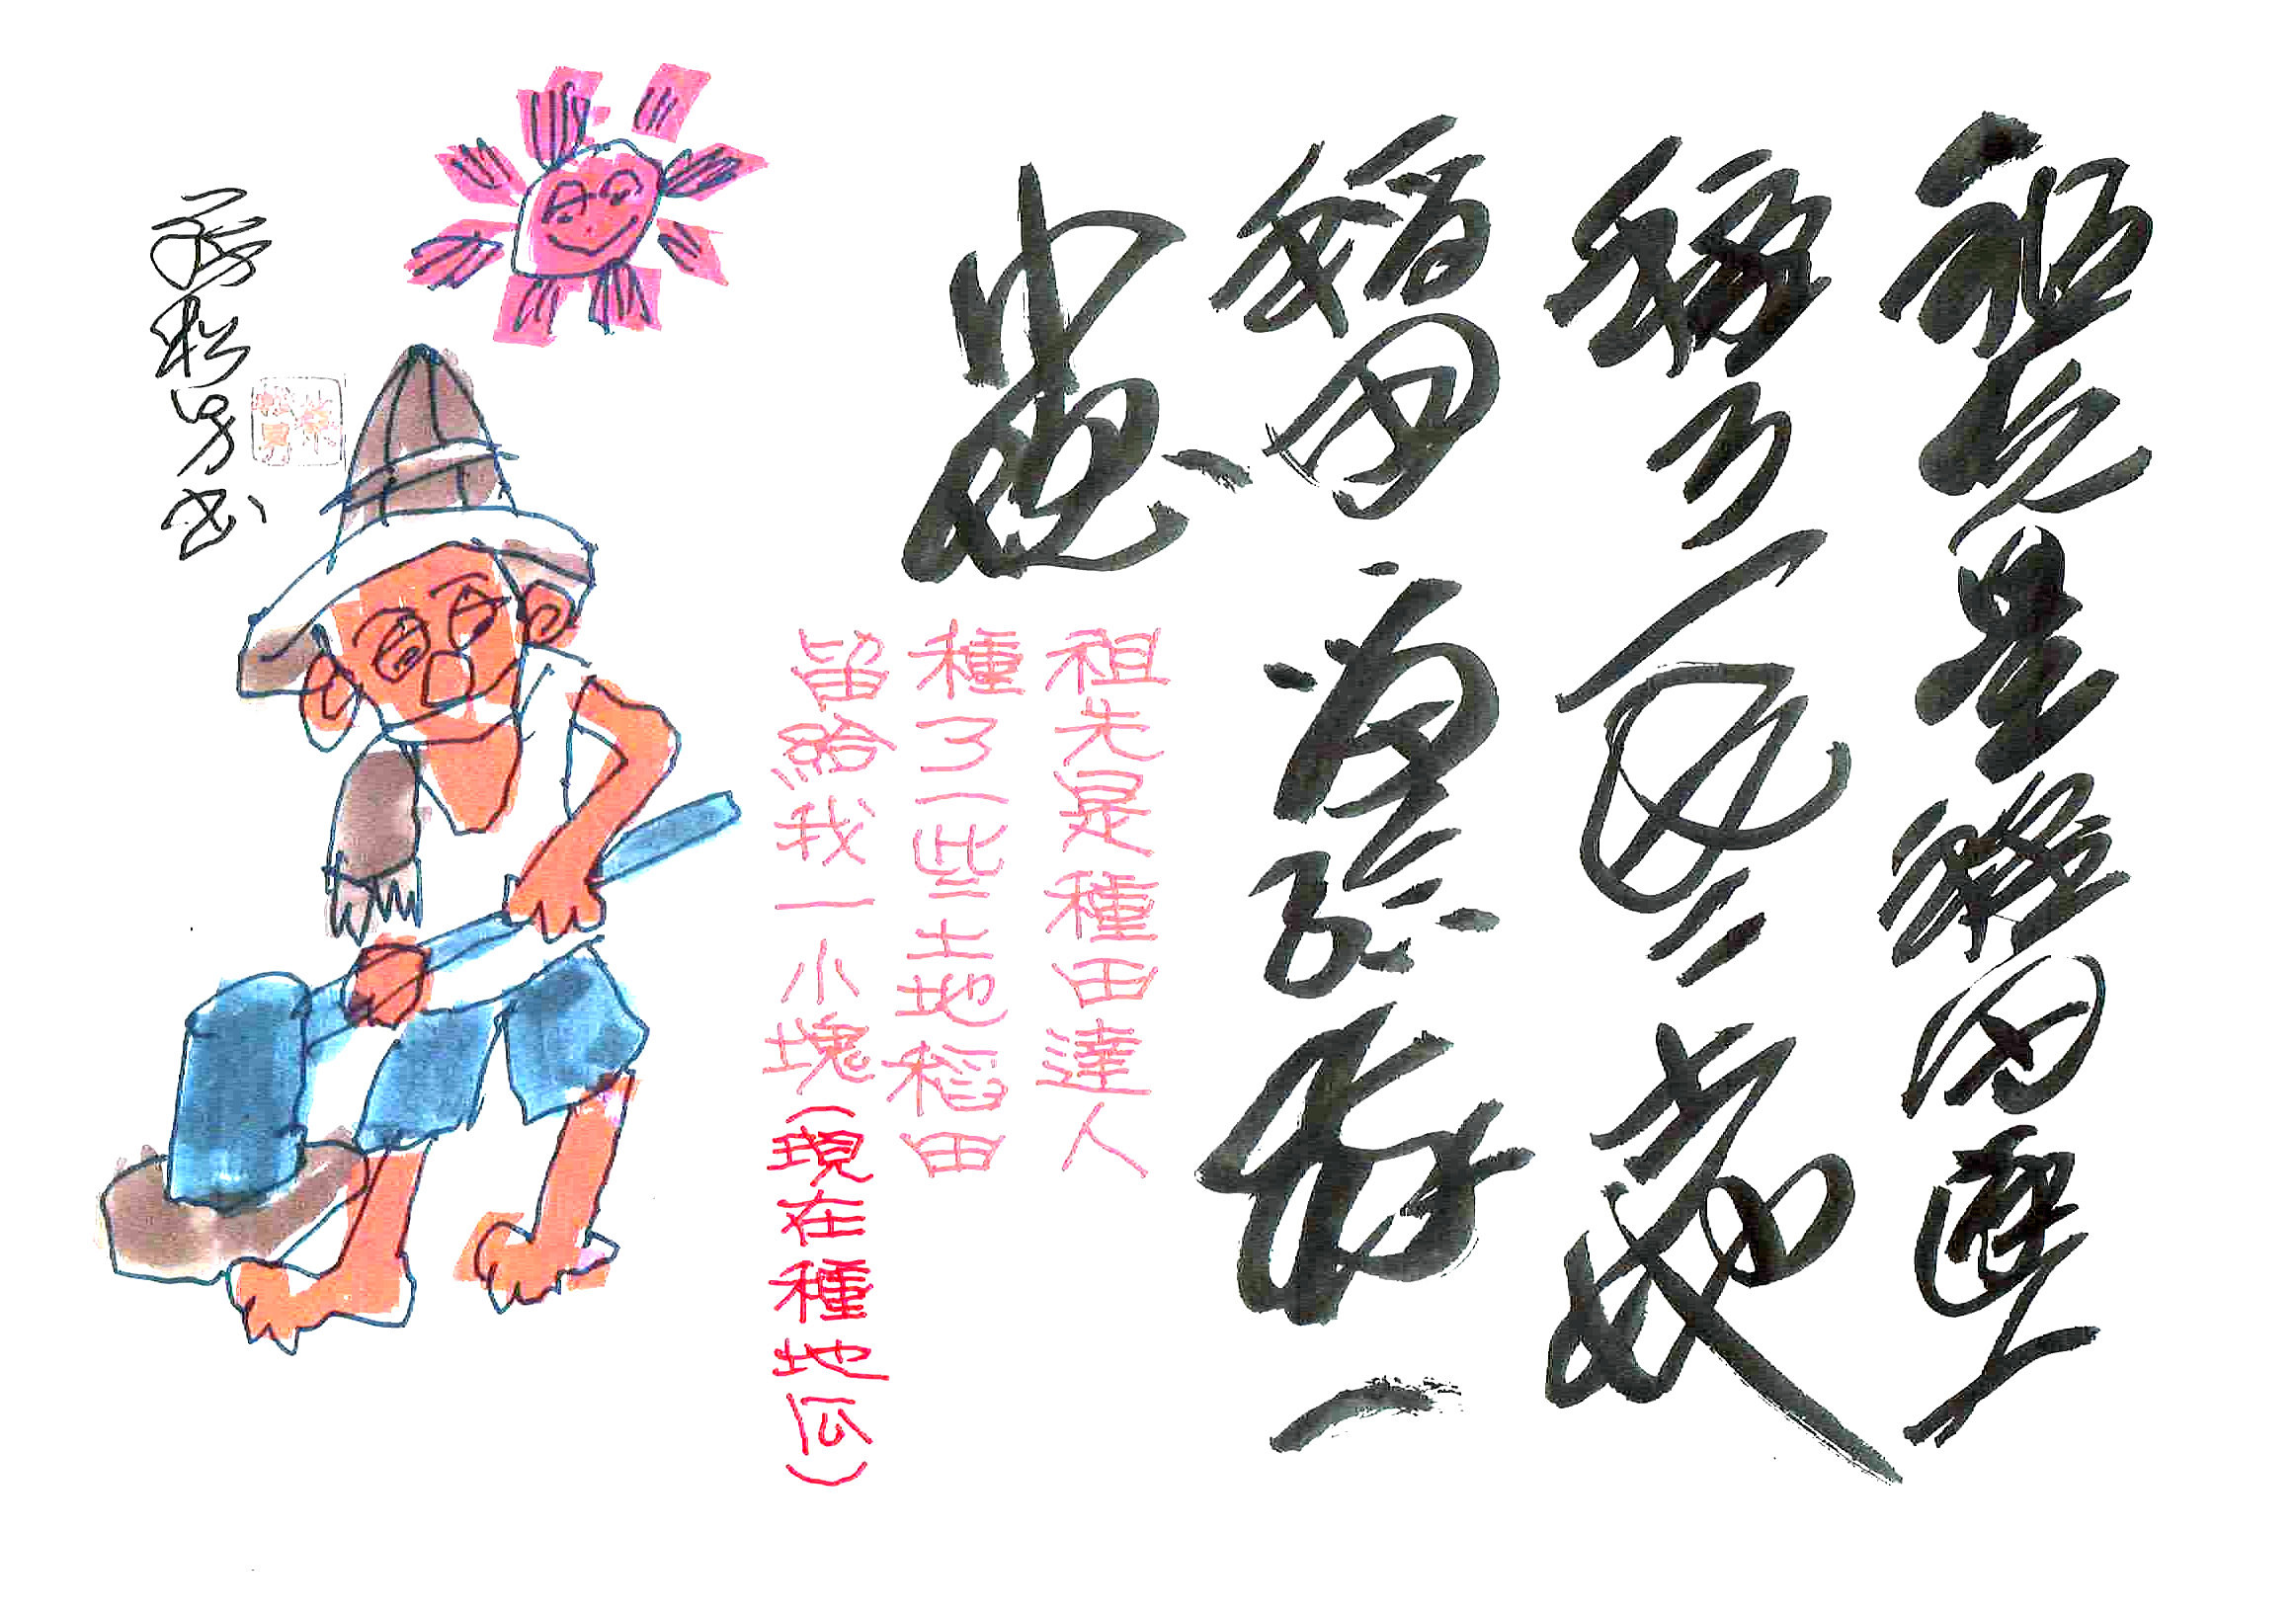 祖先是種田達人
種了一些土地
稻田留給我一
小塊
祖先是種田達人
種了一些土地稻田
留給我一小塊(現在種地瓜)
蔡松男書
蔡松男